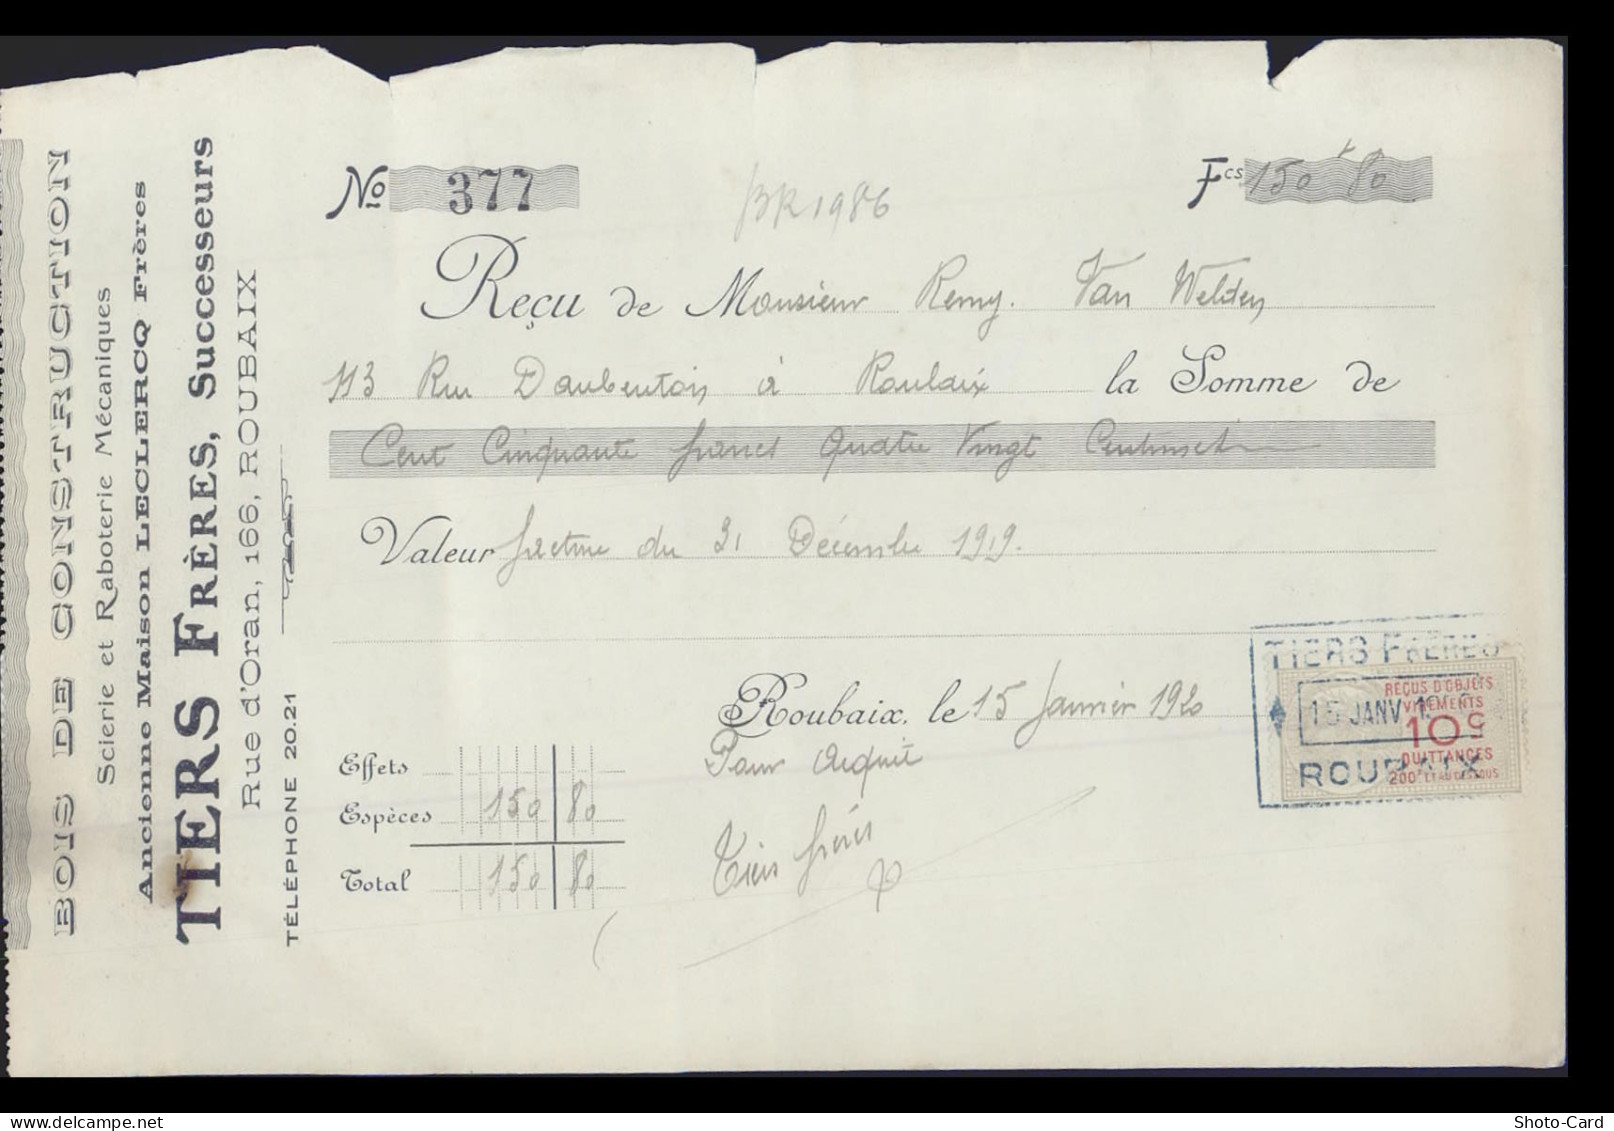 BOIS DE CONSTRUCTION
Scierie et Raboterie Mécaniques
Ancienne Maison LECLERCQ Frères
TIERS FRÈRES, Successeurs
Rue d'Oran, 166, ROUBAIX
TÉLÉPHONE 20.21
No 377
BR1986
Fcs 150 80
Reçu de Monsieur Remy. Van Welden
113 Rue Daubentois à Roubaix la Somme de
Cent Cinquante francs Quatre Vingt Centimes
Valeur facture du 31 Décembre 1919.
Roubaix, le 15 Janvier 1920
Pour Acquit
Tiers frères
Effets
Espèces 150 80
Total 150 80
TIERS FRÈRES
15 JANV. 19
ROUBAIX
REÇUS D'OBJETS
VIREMENTS
10c
QUITTANCES
200F ET AU DESSOUS
delcampe.net
Shoto-Card